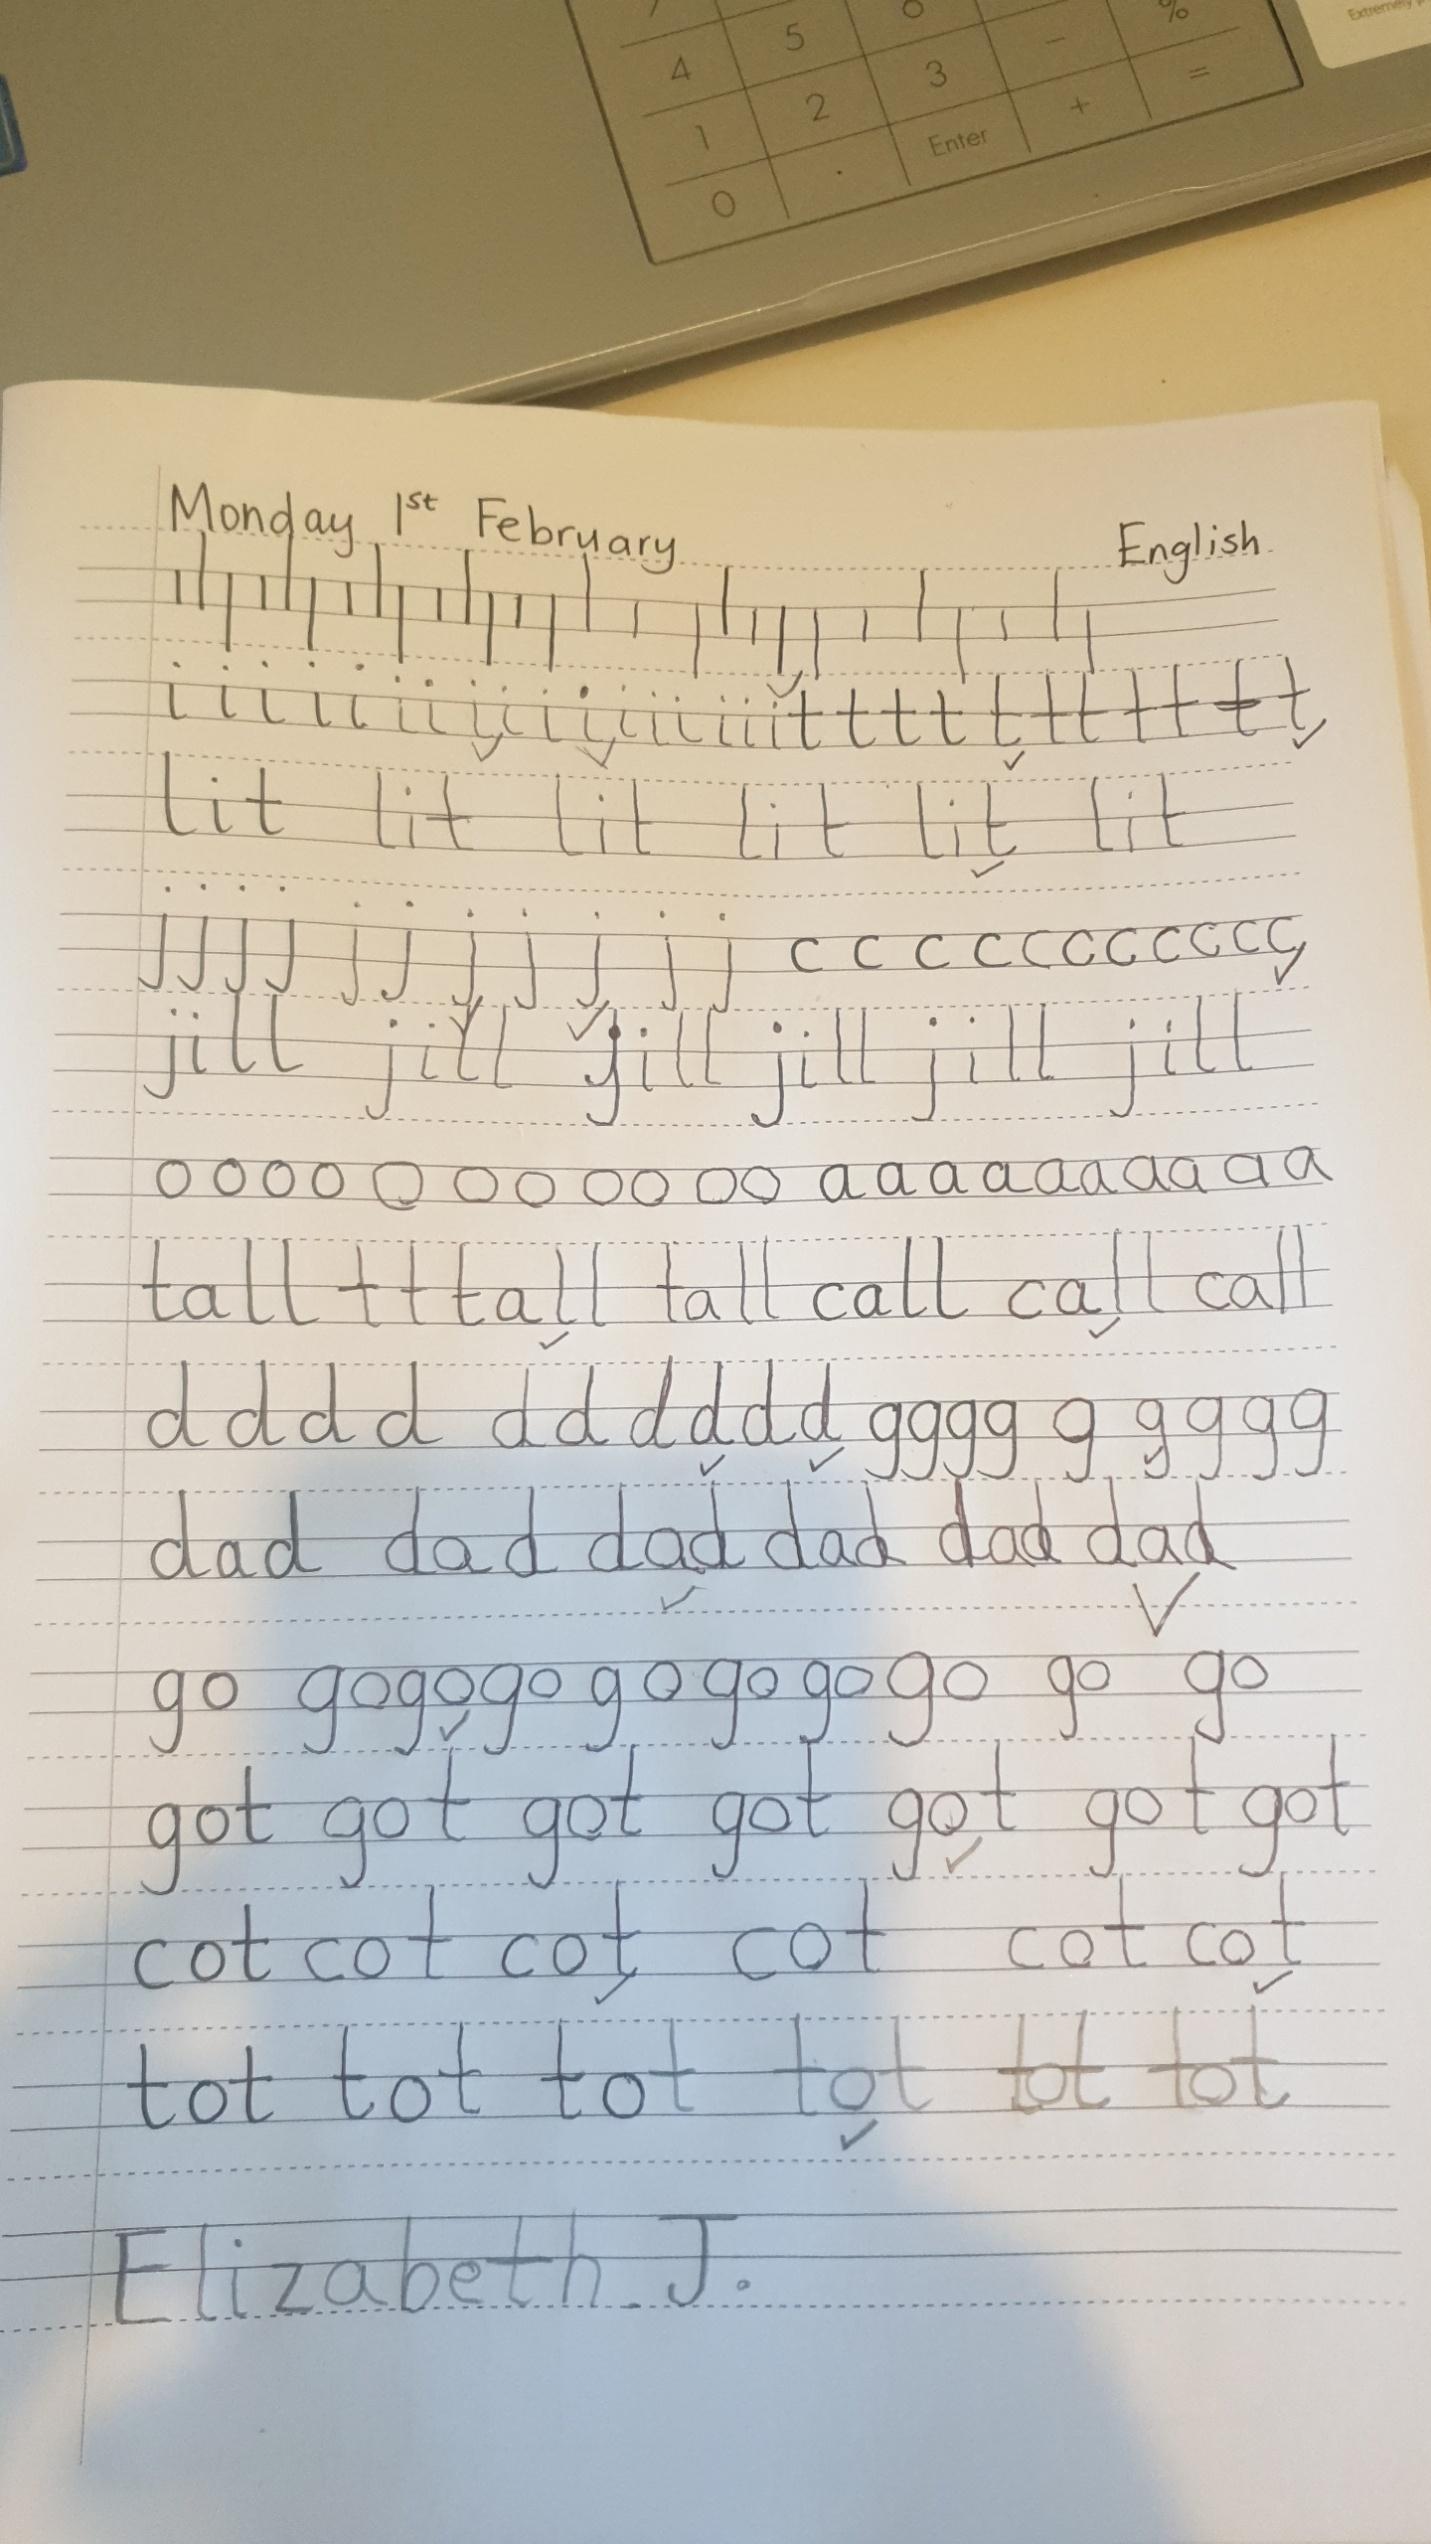 5 %
4 3 -
2 + =
1 Enter
0 .
Extremely
Monday 1st February English
i i i i i i i i i i i i i i i i i t t t t t t t t t t t t
lit lit lit lit lit lit
j j j j j j j j j j j c c c c c c c c c c c c
jill jill jill jill jill jill
o o o o o o o o o o o a a a a a a a a a a a
tall t t tall tall call call call
d d d d d d d d d d g g g g g g g g g
dad dad dad dad dad dad
go go go go go go go go go go
got got got got got got got
cot cot cot cot cot cot
tot tot tot tot tot tot
Elizabeth. J.